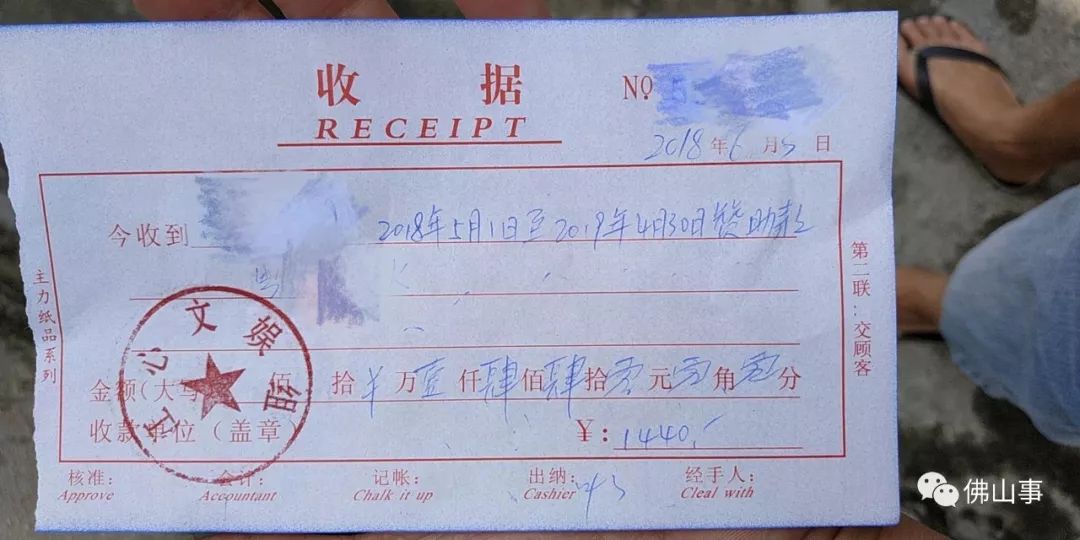 收据 NO.
RECEIPT
2018年6月5日
今收到 2018年5月1日至2019年4月30日赞助款
金额(大写 佰 拾 万壹仟肆佰肆拾零元零角零分
收款单位(盖章) ¥: 1440
核准: 会计: 记帐: 出纳: 经手人:
Approve Accountant Chalk it up Cashier Cleal with
主力纸品系列
第二联:交顾客
心文娱
佛山事